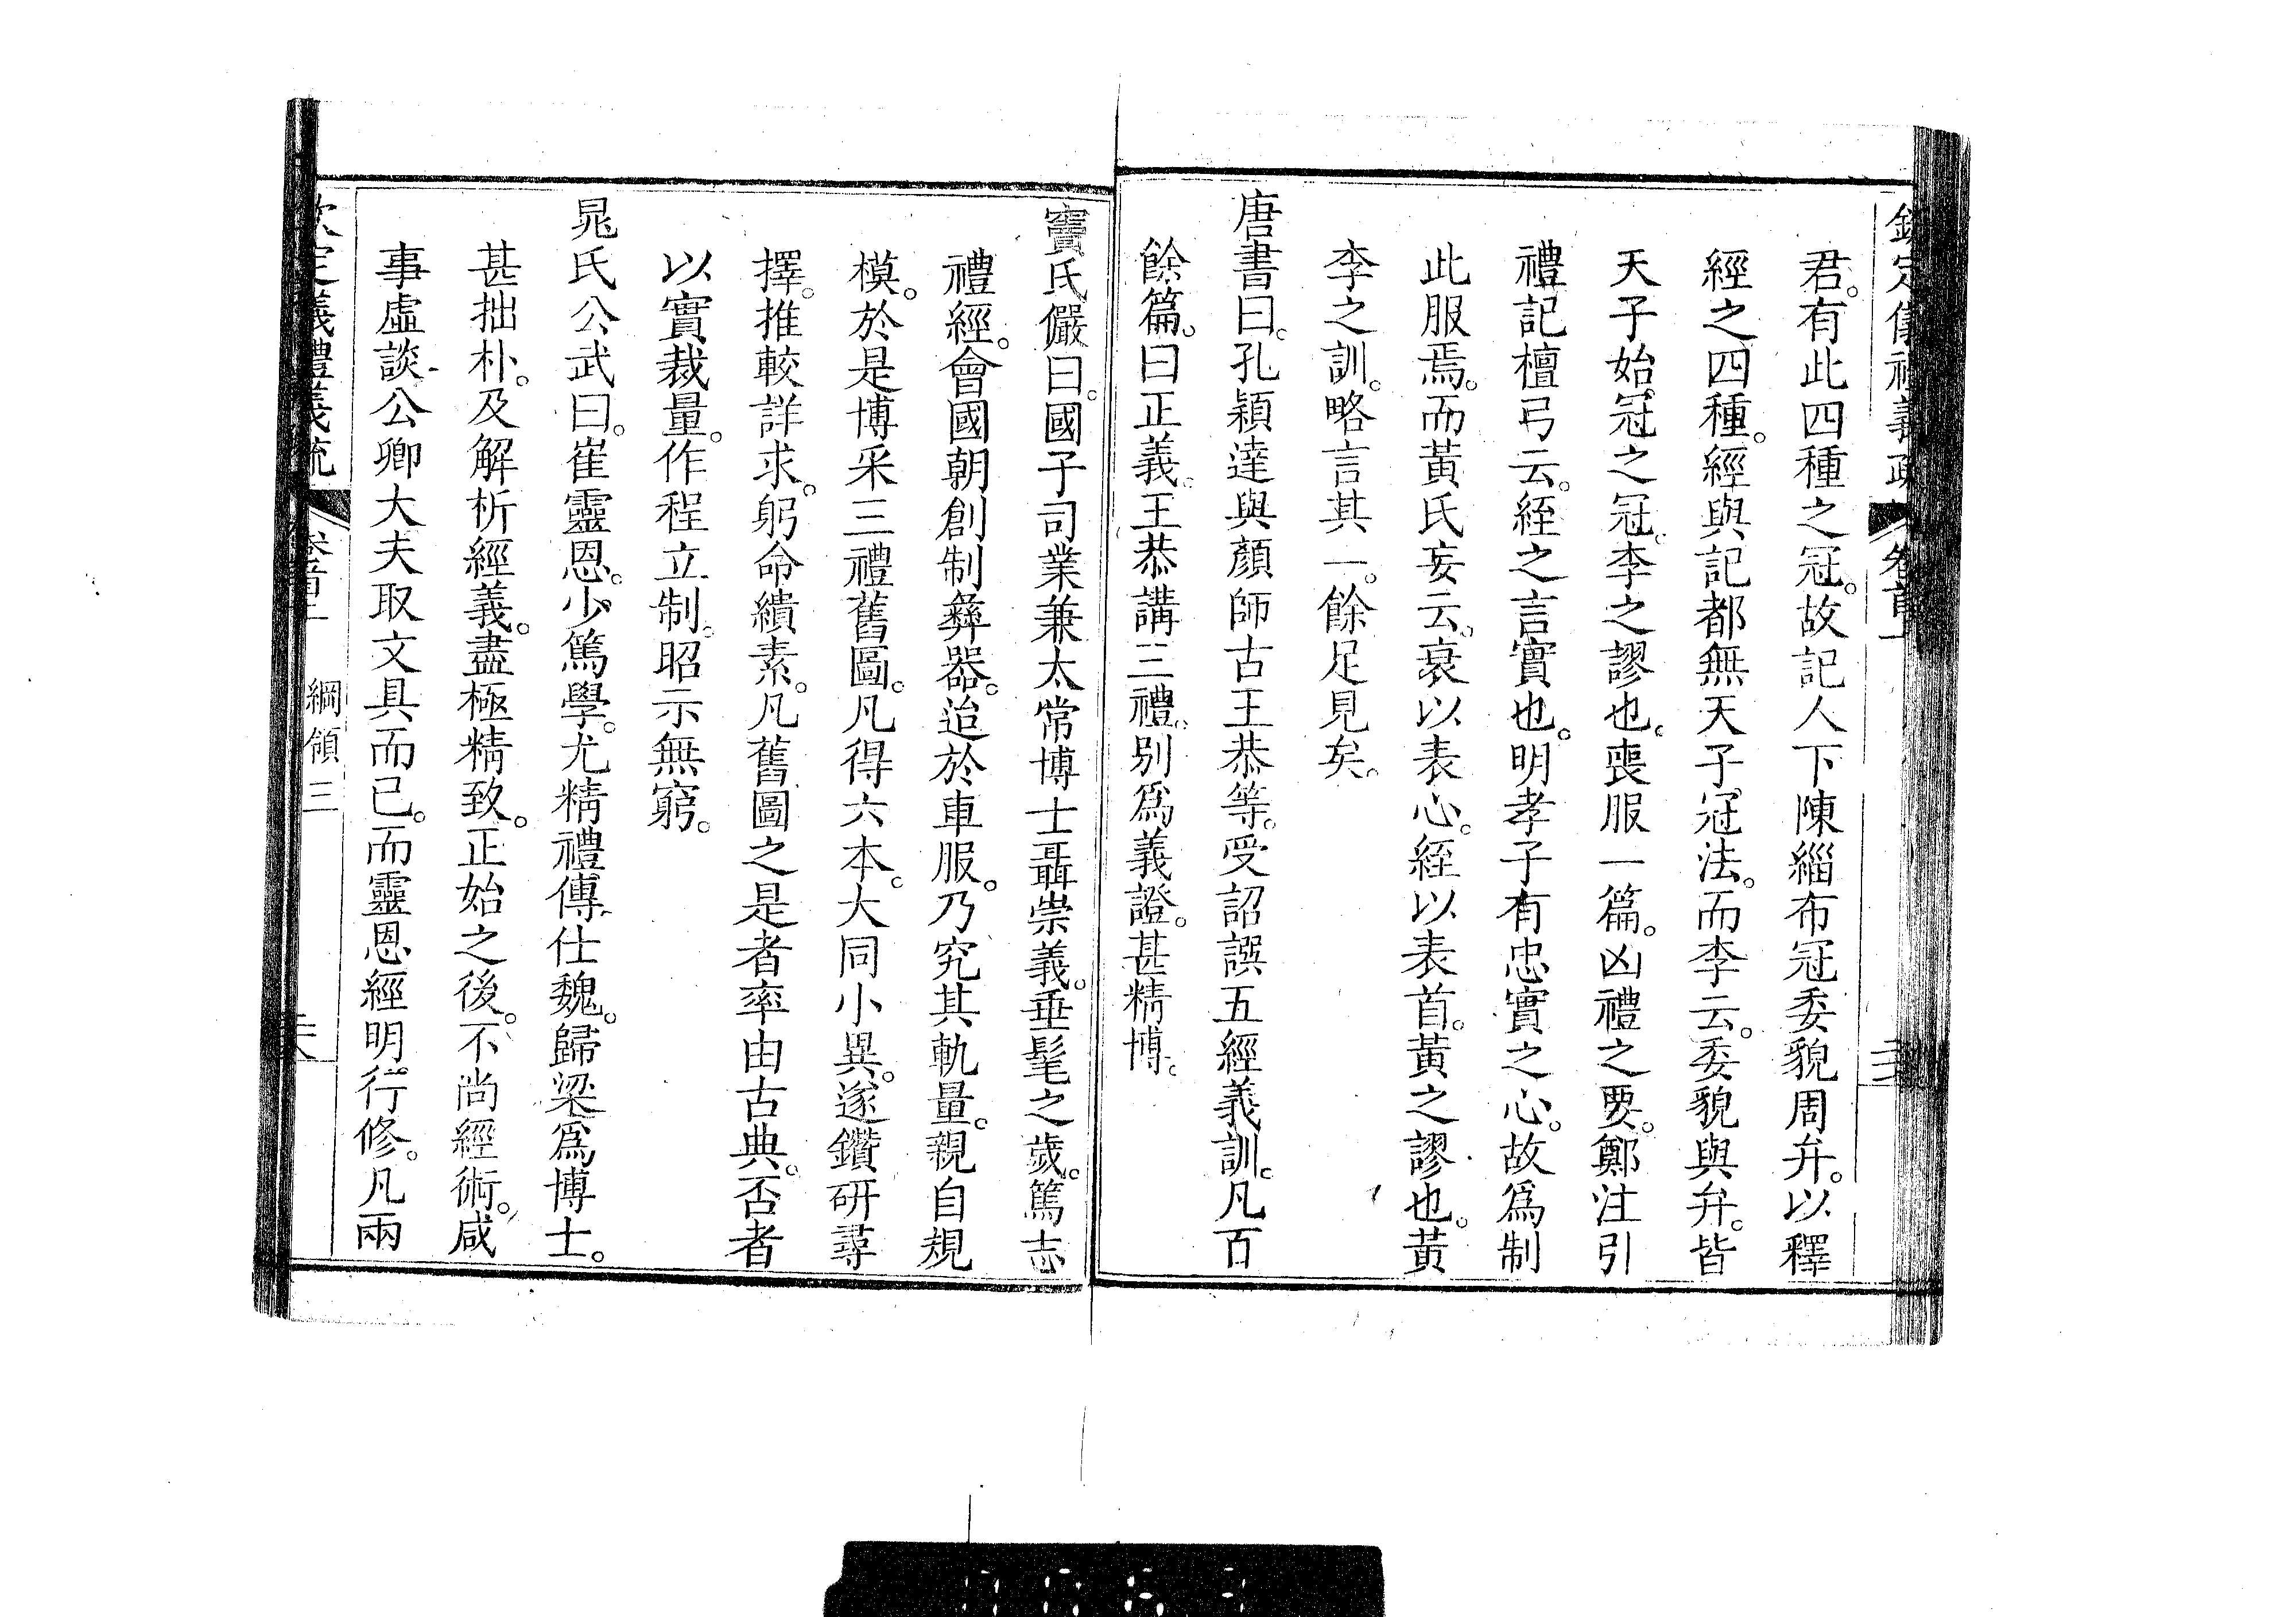 欽定儀禮義疏 卷首一
君。有此四種之冠。故記人下陳緇布冠委貌周弁。以釋
經之四種。經與記都無天子冠法。而李云。委貌與弁。皆
天子始冠之冠。李之謬也。喪服一篇。凶禮之要。鄭注引
禮記檀弓云。絰之言實也。明孝子有忠實之心。故爲制
此服焉。而黃氏妄云。衰以表心。絰以表首。黃之謬也。黃
李之訓。略言其一。餘足見矣。
唐書曰。孔穎達與顏師古王恭等。受詔譔五經義訓。凡百
餘篇。曰正義。王恭講三禮。別爲義證。甚精博。
竇氏儼曰。國子司業兼太常博士聶崇義。垂髦之歲。篤志
禮經。會國朝創制彝器。迨於車服。乃究其軌量。親自規
模。於是博采三禮舊圖。凡得六本。大同小異。遂鑽研尋
擇。推較詳求。躬命繢素。凡舊圖之是者率由古典。否者
以實裁量。作程立制。昭示無窮。
晁氏公武曰。崔靈恩。少篤學。尤精禮傳。仕魏。歸梁爲博士。
甚拙朴。及解析經義。盡極精致。正始之後。不尚經術。咸
事虛談。公卿大夫取文具而已。而靈恩經明行修。凡兩
欽定儀禮義疏 卷首一 綱領三